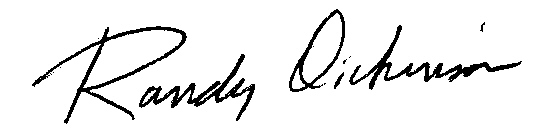 Randy Dickinson